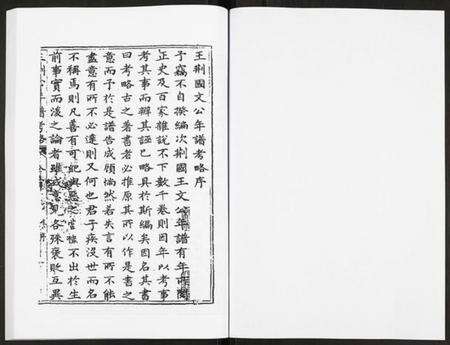 王荆國文公年譜考略序
予竊不自揆編次荆國王文公年譜有年所閱
正史及百家雜說不下數千卷則因年以考事
考其事而辯其誣已略具於斯編矣因名其書
曰考略古之著書者必推原其所以作是書之
意而予於是譜告成顧惴然若失言有所不能
盡意有所不必達則又何也君子疾沒世而名
不稱焉則凡善有可紀與惡之當惟不出於生
前事實而後之論者雖或意見各殊褒貶互異